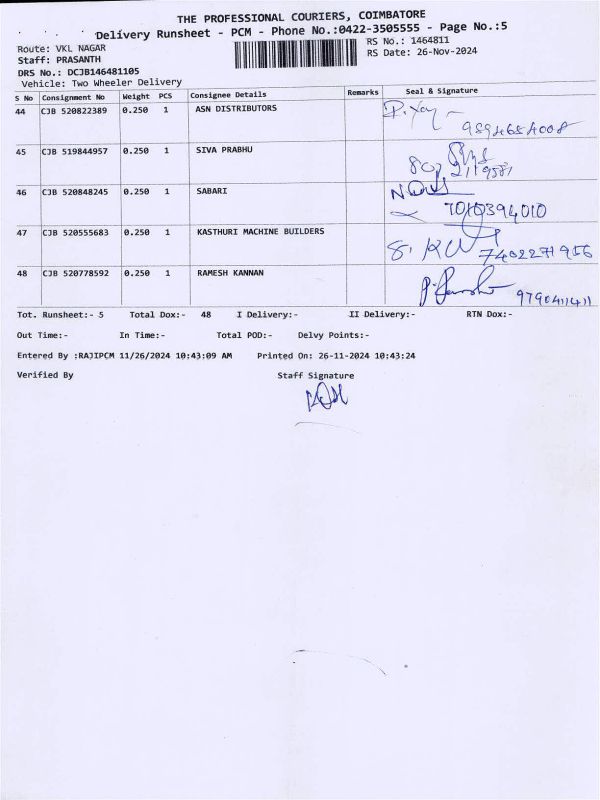 THE PROFESSIONAL COURIERS, COIMBATORE
Delivery Runsheet - PCM - Phone No.:0422-3505555 - Page No.:5
Route: VKL NAGAR
RS No.: 1464811
Staff: PRASANTH
RS Date: 26-Nov-2024
DRS No.: DCJB146481105
Vehicle: Two Wheeler Delivery
S No Consignment No Weight PCS Consignee Details Remarks Seal & Signature
44 CJB 520822389 0.250 1 ASN DISTRIBUTORS
9594654008
45 CJB 519844957 0.250 1 SIVA PRABHU
46 CJB 520848245 0.250 1 SABARI
7010394010
47 CJB 520555683 0.250 1 KASTHURI MACHINE BUILDERS
7402271956
48 CJB 520778592 0.250 1 RAMESH KANNAN
9790411411
Tot. Runsheet:- 5 Total Dox:- 48 I Delivery:- II Delivery:- RTN Dox:-
Out Time:- In Time:- Total POD:- Delvy Points:-
Entered By :RAJIPCM 11/26/2024 10:43:09 AM Printed On: 26-11-2024 10:43:24
Verified By Staff Signature